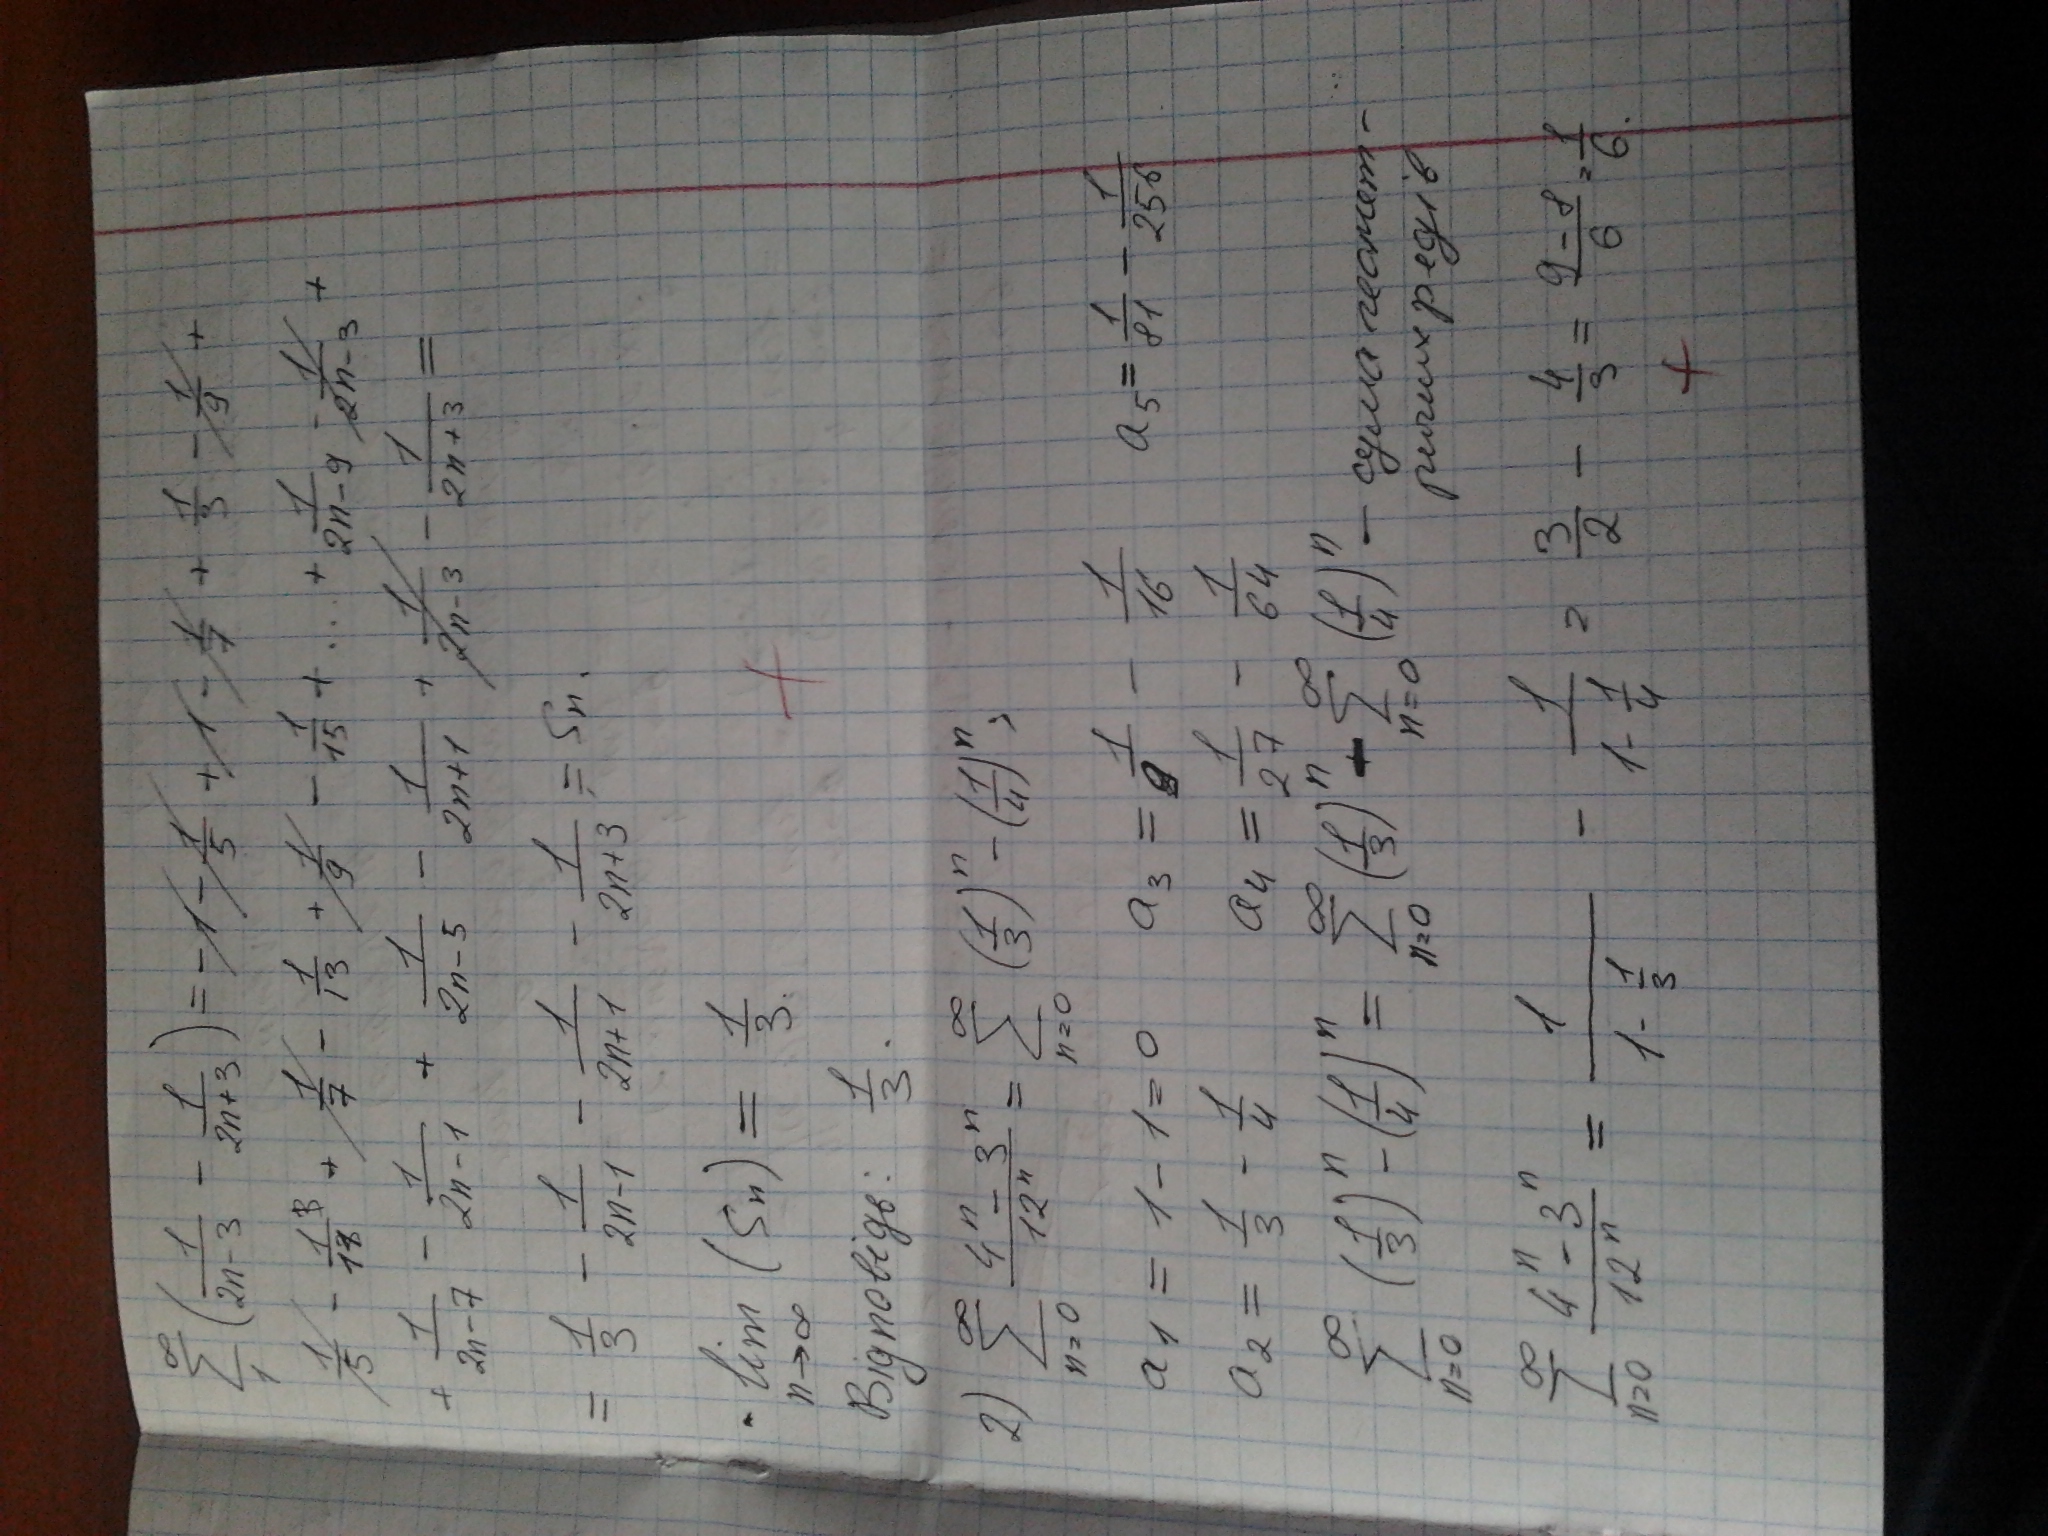 ∞∑1 (1/(2n-3) - 1/(2n+3)) = -1 - 1/5 + 1 - 1/7 + 1/3 - 1/9 +
1/5 - 1/ + 1/7 - 1/13 + 1/9 - 1/15 + ... + 1/(2n-9) - 1/(2n-3) +
+ 1/(2n-7) - 1/(2n-1) + 1/(2n-5) - 1/(2n+1) + 1/(2n-3) - 1/(2n+3) =
= 1/3 - 1/(2n-1) - 1/(2n+1) - 1/(2n+3) = Sn.
- lim n→∞ (Sn) = 1/3.
+
Відповідь: 1/3.
2) ∞∑n=0 (4^n - 3^n)/12^n = ∞∑n=0 (1/3)^n - (1/4)^n;
a1 = 1 - 1 = 0 a3 = 1/9 - 1/16 a5 = 1/81 - 1/256
a2 = 1/3 - 1/4 a4 = 1/27 - 1/64
∞∑n=0 (1/3)^n - (1/4)^n = ∞∑n=0 (1/3)^n - ∞∑n=0 (1/4)^n - сума геомет-
ричних рядів
∞∑n=0 (4^n - 3^n)/12^n = 1/(1 - 1/3) - 1/(1 - 1/4) = 3/2 - 4/3 = (9-8)/6 = 1/6.
+